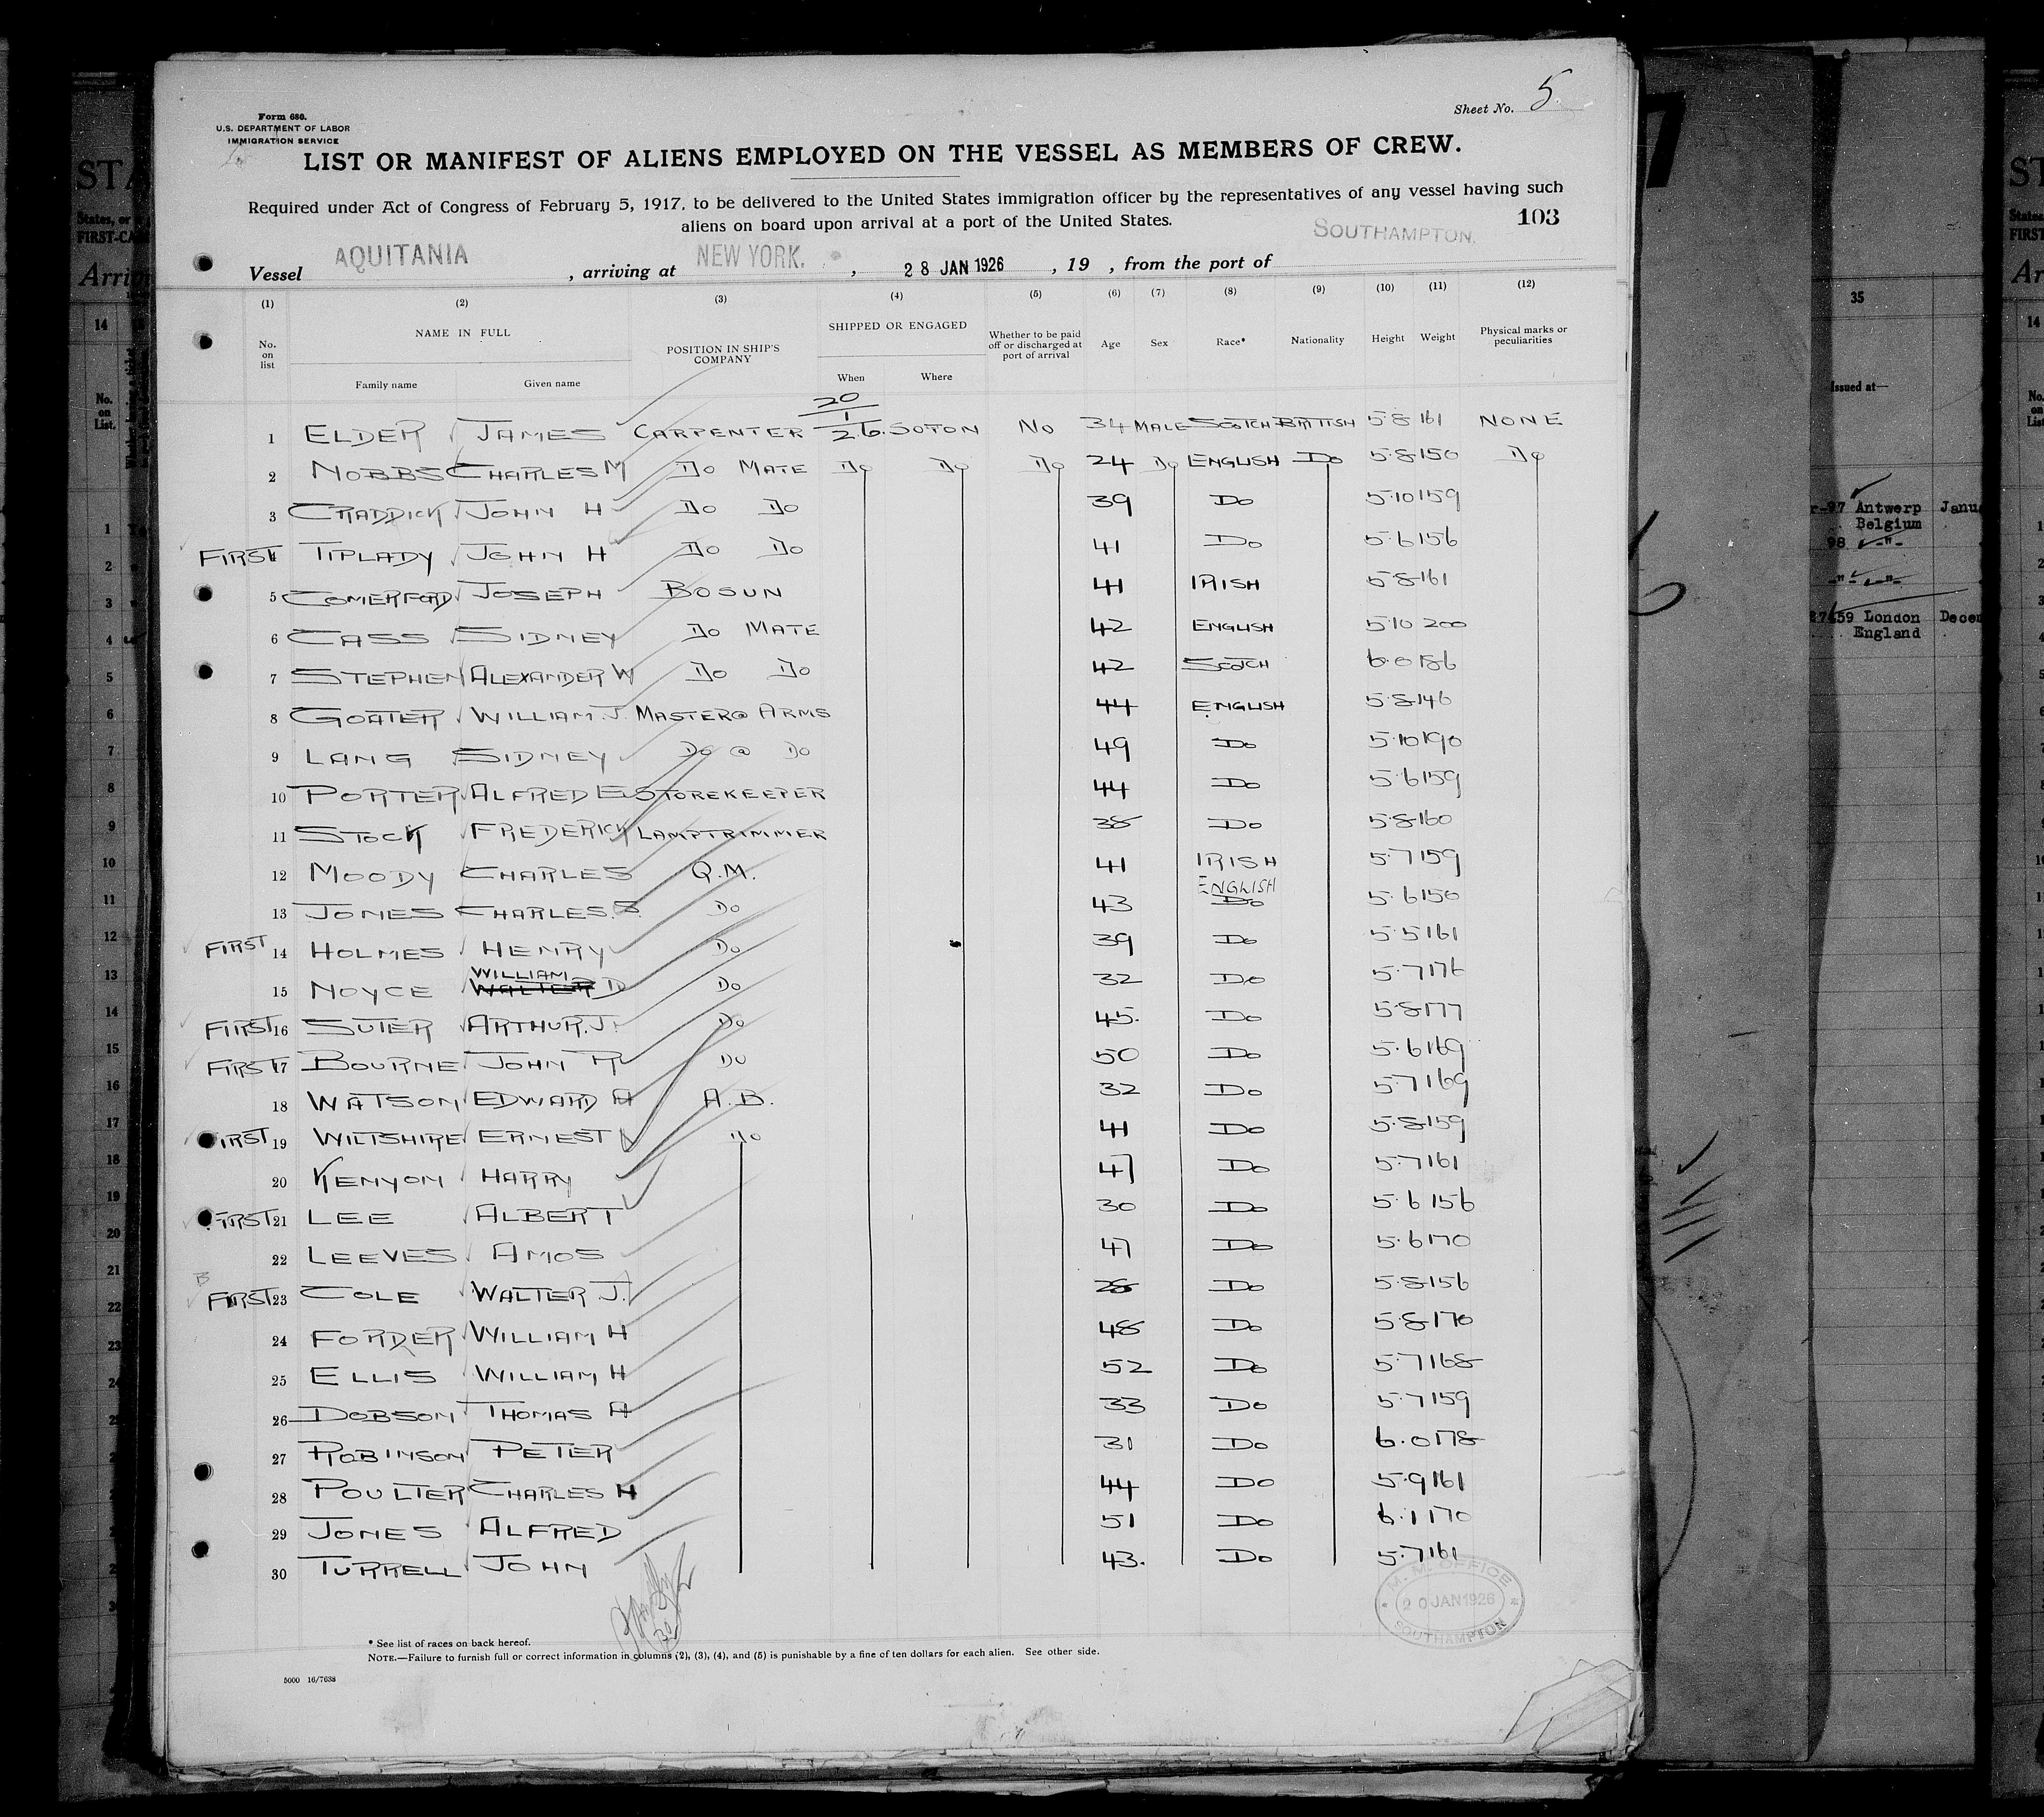 Sheet No. 5
Form 680.
U.S. DEPARTMENT OF LABOR
IMMIGRATION SERVICE
LIST OR MANIFEST OF ALIENS EMPLOYED ON THE VESSEL AS MEMBERS OF CREW.
Required under Act of Congress of February 5, 1917, to be delivered to the United States immigration officer by the representatives of any vessel having such
aliens on board upon arrival at a port of the United States.
103
Vessel AQUITANIA , arriving at NEW YORK. , 28 JAN 1926 , 19 , from the port of SOUTHAMPTON.
(1) (2) (3) (4) (5) (6) (7) (8) (9) (10) (11) (12)
No. on list NAME IN FULL POSITION IN SHIP'S COMPANY SHIPPED OR ENGAGED Whether to be paid off or discharged at port of arrival Age Sex Race* Nationality Height Weight Physical marks or peculiarities
Family name Given name When Where
1 ELDER JAMES CARPENTER 20/1/26. SOTON NO 34 MALE SCOTCH BRITISH 5·8 161 NONE
2 NOBBS CHARLES M DO MATE DO DO DO 24 DO ENGLISH DO 5·8 150 DO
3 CRADDICK JOHN H DO DO 39 DO 5·10 159
FIRST 4 TIPLADY JOHN H DO DO 41 DO 5·6 156
5 COMERFORD JOSEPH BOSUN 41 IRISH 5·8 161
6 CASS SIDNEY DO MATE 42 ENGLISH 5·10 200
7 STEPHEN ALEXANDER W DO DO 42 SCOTCH 6·0 186
8 GOATER WILLIAM. J. MASTER @ ARMS 44 ENGLISH 5·8 146
9 LANG SIDNEY DO @ DO 49 DO 5·10 190
10 PORTER ALFRED E STOREKEEPER 44 DO 5·6 159
11 STOCK FREDERICK LAMPTRIMMER 38 DO 5·8 160
12 MOODY CHARLES Q.M. 41 IRISH 5·7 159
13 JONES CHARLES. S. DO 43 ENGLISH DO 5·6 150
FIRST 14 HOLMES HENRY DO 39 DO 5·5 161
15 NOYCE WILLIAM WALTER D DO 32 DO 5·7 176
FIRST 16 SUTER ARTHUR. J. DO 45. DO 5·8 177
FIRST 17 BOURNE JOHN R DO 50 DO 5·6 169
18 WATSON EDWARD A A.B. 32 DO 5·7 169
FIRST 19 WILTSHIRE ERNEST DO 41 DO 5·8 159
20 KENYON HARRY 47 DO 5·7 161
FIRST 21 LEE ALBERT 30 DO 5·6 156
22 LEEVES AMOS 47 DO 5·6 170
FIRST 23 COLE WALTER J. 28 DO 5·8 156
24 FORDER WILLIAM H 48 DO 5·8 170
25 ELLIS WILLIAM H 52 DO 5·7 168
26 DOBSON THOMAS A 33 DO 5·7 159
27 ROBINSON PETER 31 DO 6·0 178
28 POULTER CHARLES H 44 DO 5·9 161
29 JONES ALFRED 51 DO 6·1 170
30 TURRELL JOHN 43. DO 5·7 161
M. M. OFFICE
20 JAN 1926
SOUTHAMPTON
* See list of races on back hereof.
NOTE.—Failure to furnish full or correct information in columns (2), (3), (4), and (5) is punishable by a fine of ten dollars for each alien. See other side.
5000 16/7638
35
Issued at—
Antwerp
Belgium
98 -"-
-"- -"-
London
England